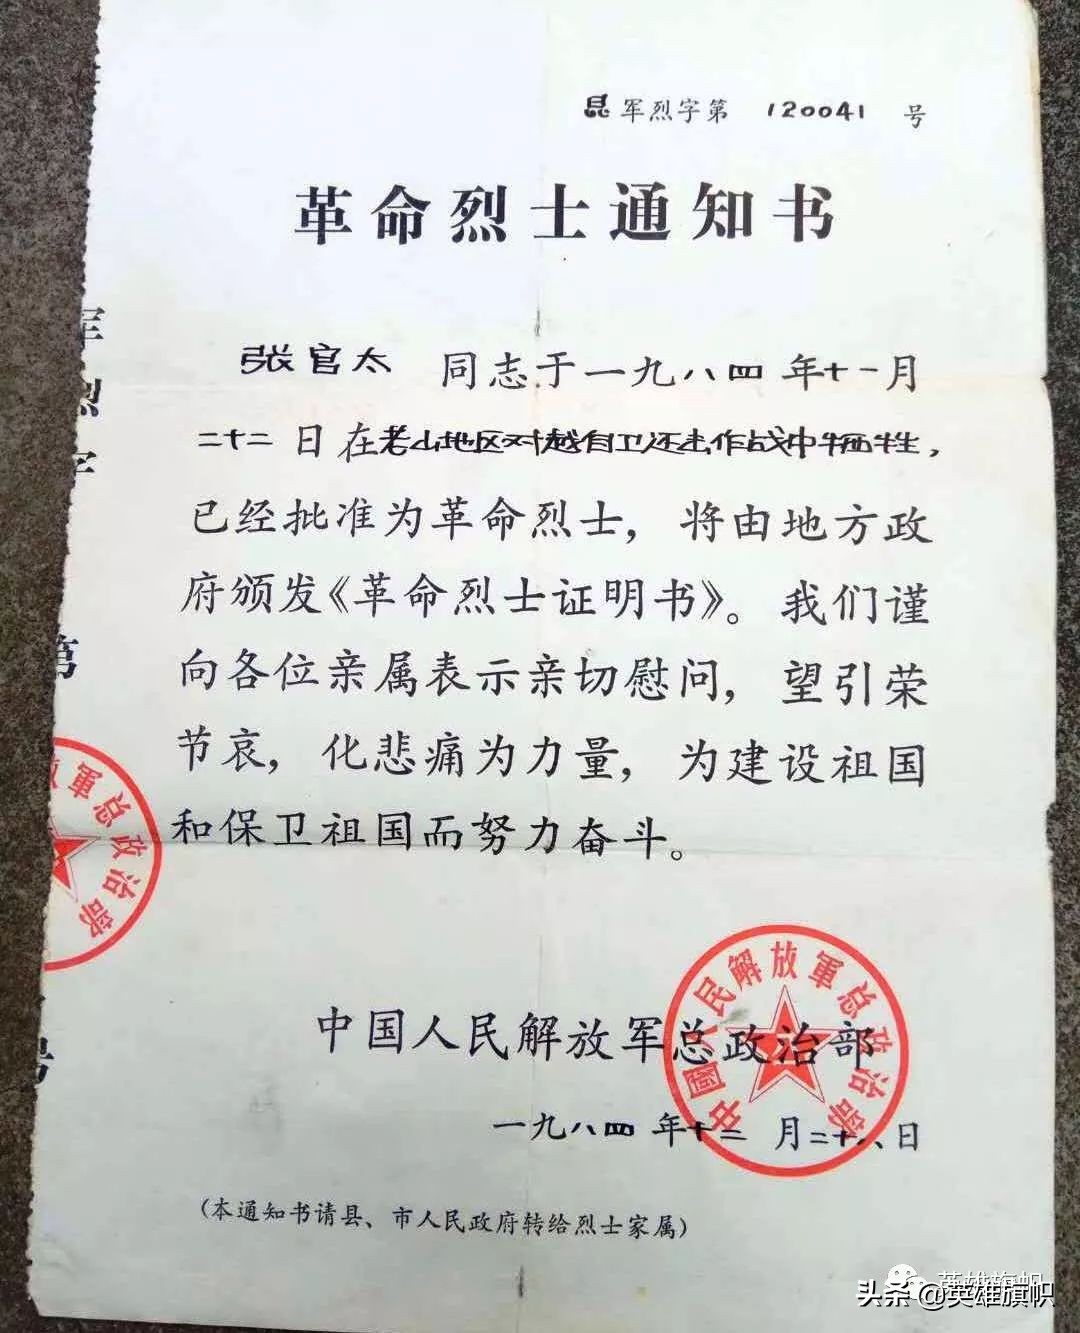 昆军烈字第 120041 号
革命烈士通知书
张官太 同志于一九八四年十一月
二十二日在老山地区对越自卫还击作战中牺牲，
已经批准为革命烈士，将由地方政
府颁发《革命烈士证明书》。我们谨
向各位亲属表示亲切慰问，望引荣
节哀，化悲痛为力量，为建设祖国
和保卫祖国而努力奋斗。
中国人民解放军总政治部
一九八四年十二月二十八日
(本通知书请县、市人民政府转给烈士家属)
中國人民解放軍总政治部
軍总政治部
军烈字
第
号
英雄旗帜
头条 @英雄旗帜